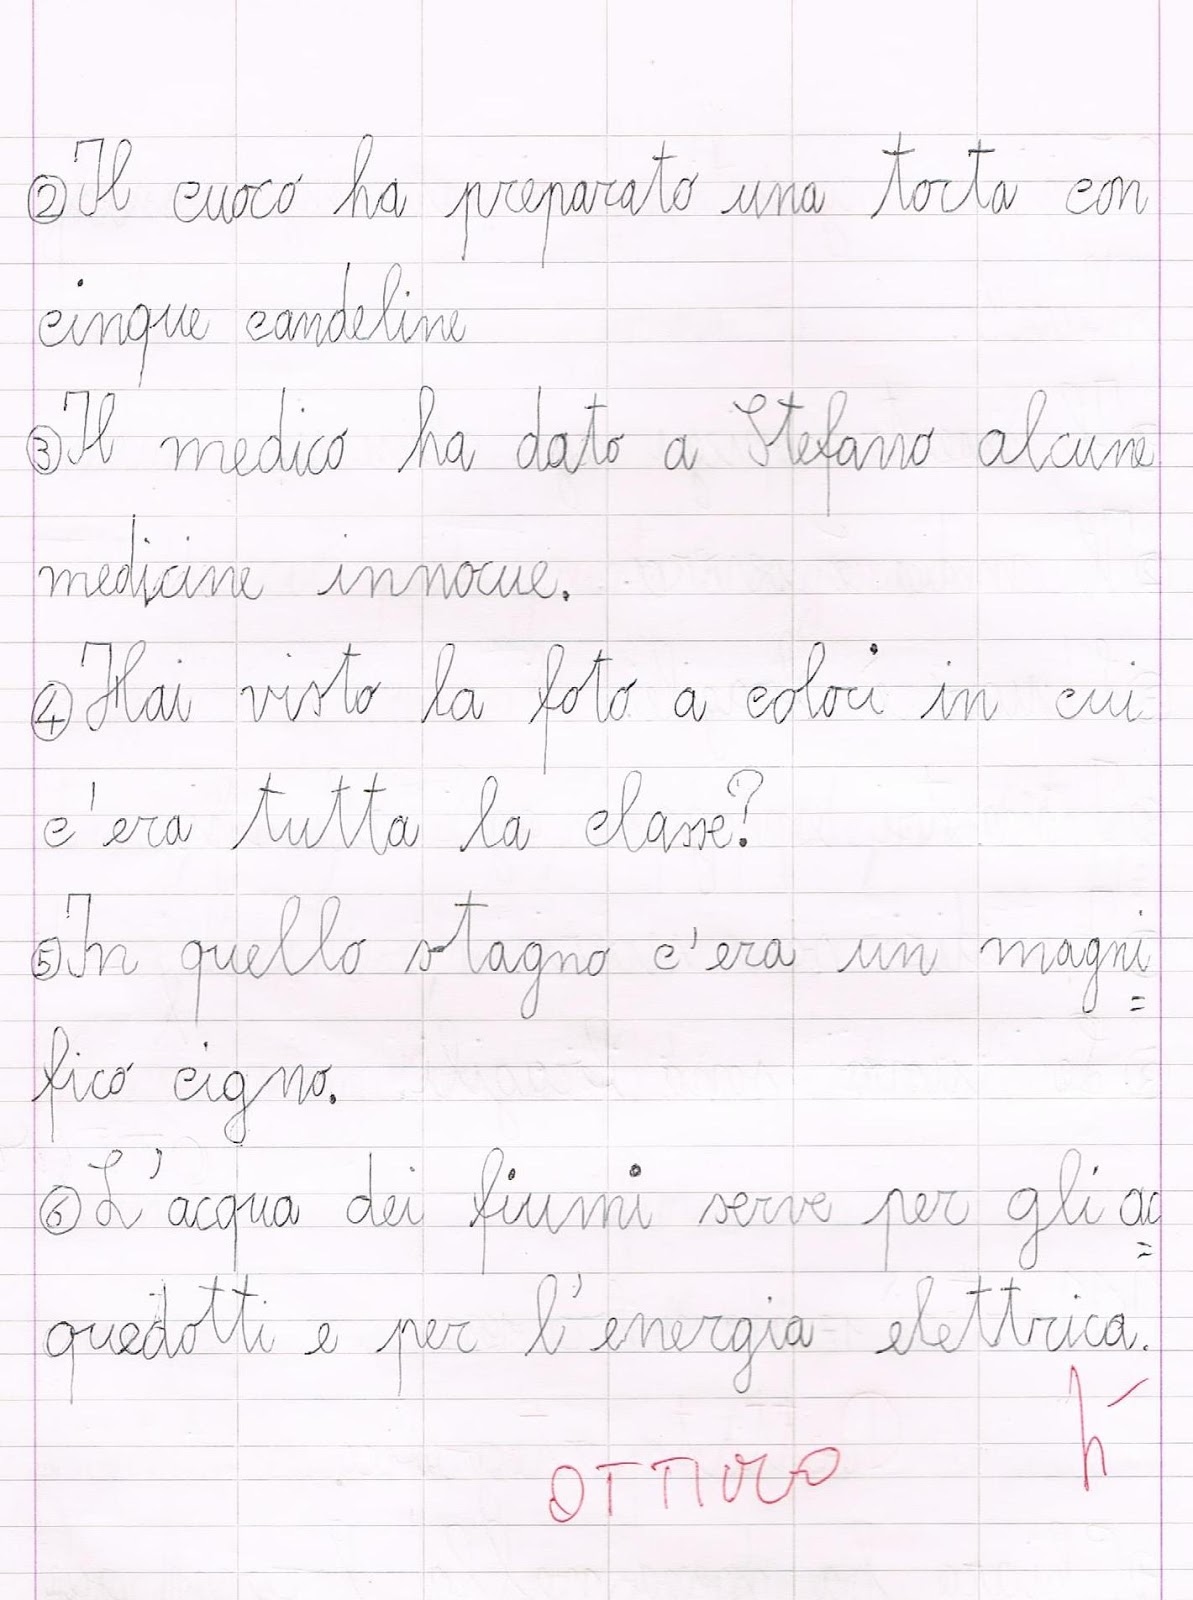 ② Il cuoco ha preparato una torta con
cinque candeline
③ Il medico ha dato a Stefano alcune
medicine innocue.
④ Hai visto la foto a colori in cui
c'era tutta la classe?
⑤ In quello stagno c'era un magni=
fico cigno.
⑥ L'acqua dei fiumi serve per gli ac=
quedotti e per l'energia elettrica.
OTTIMO